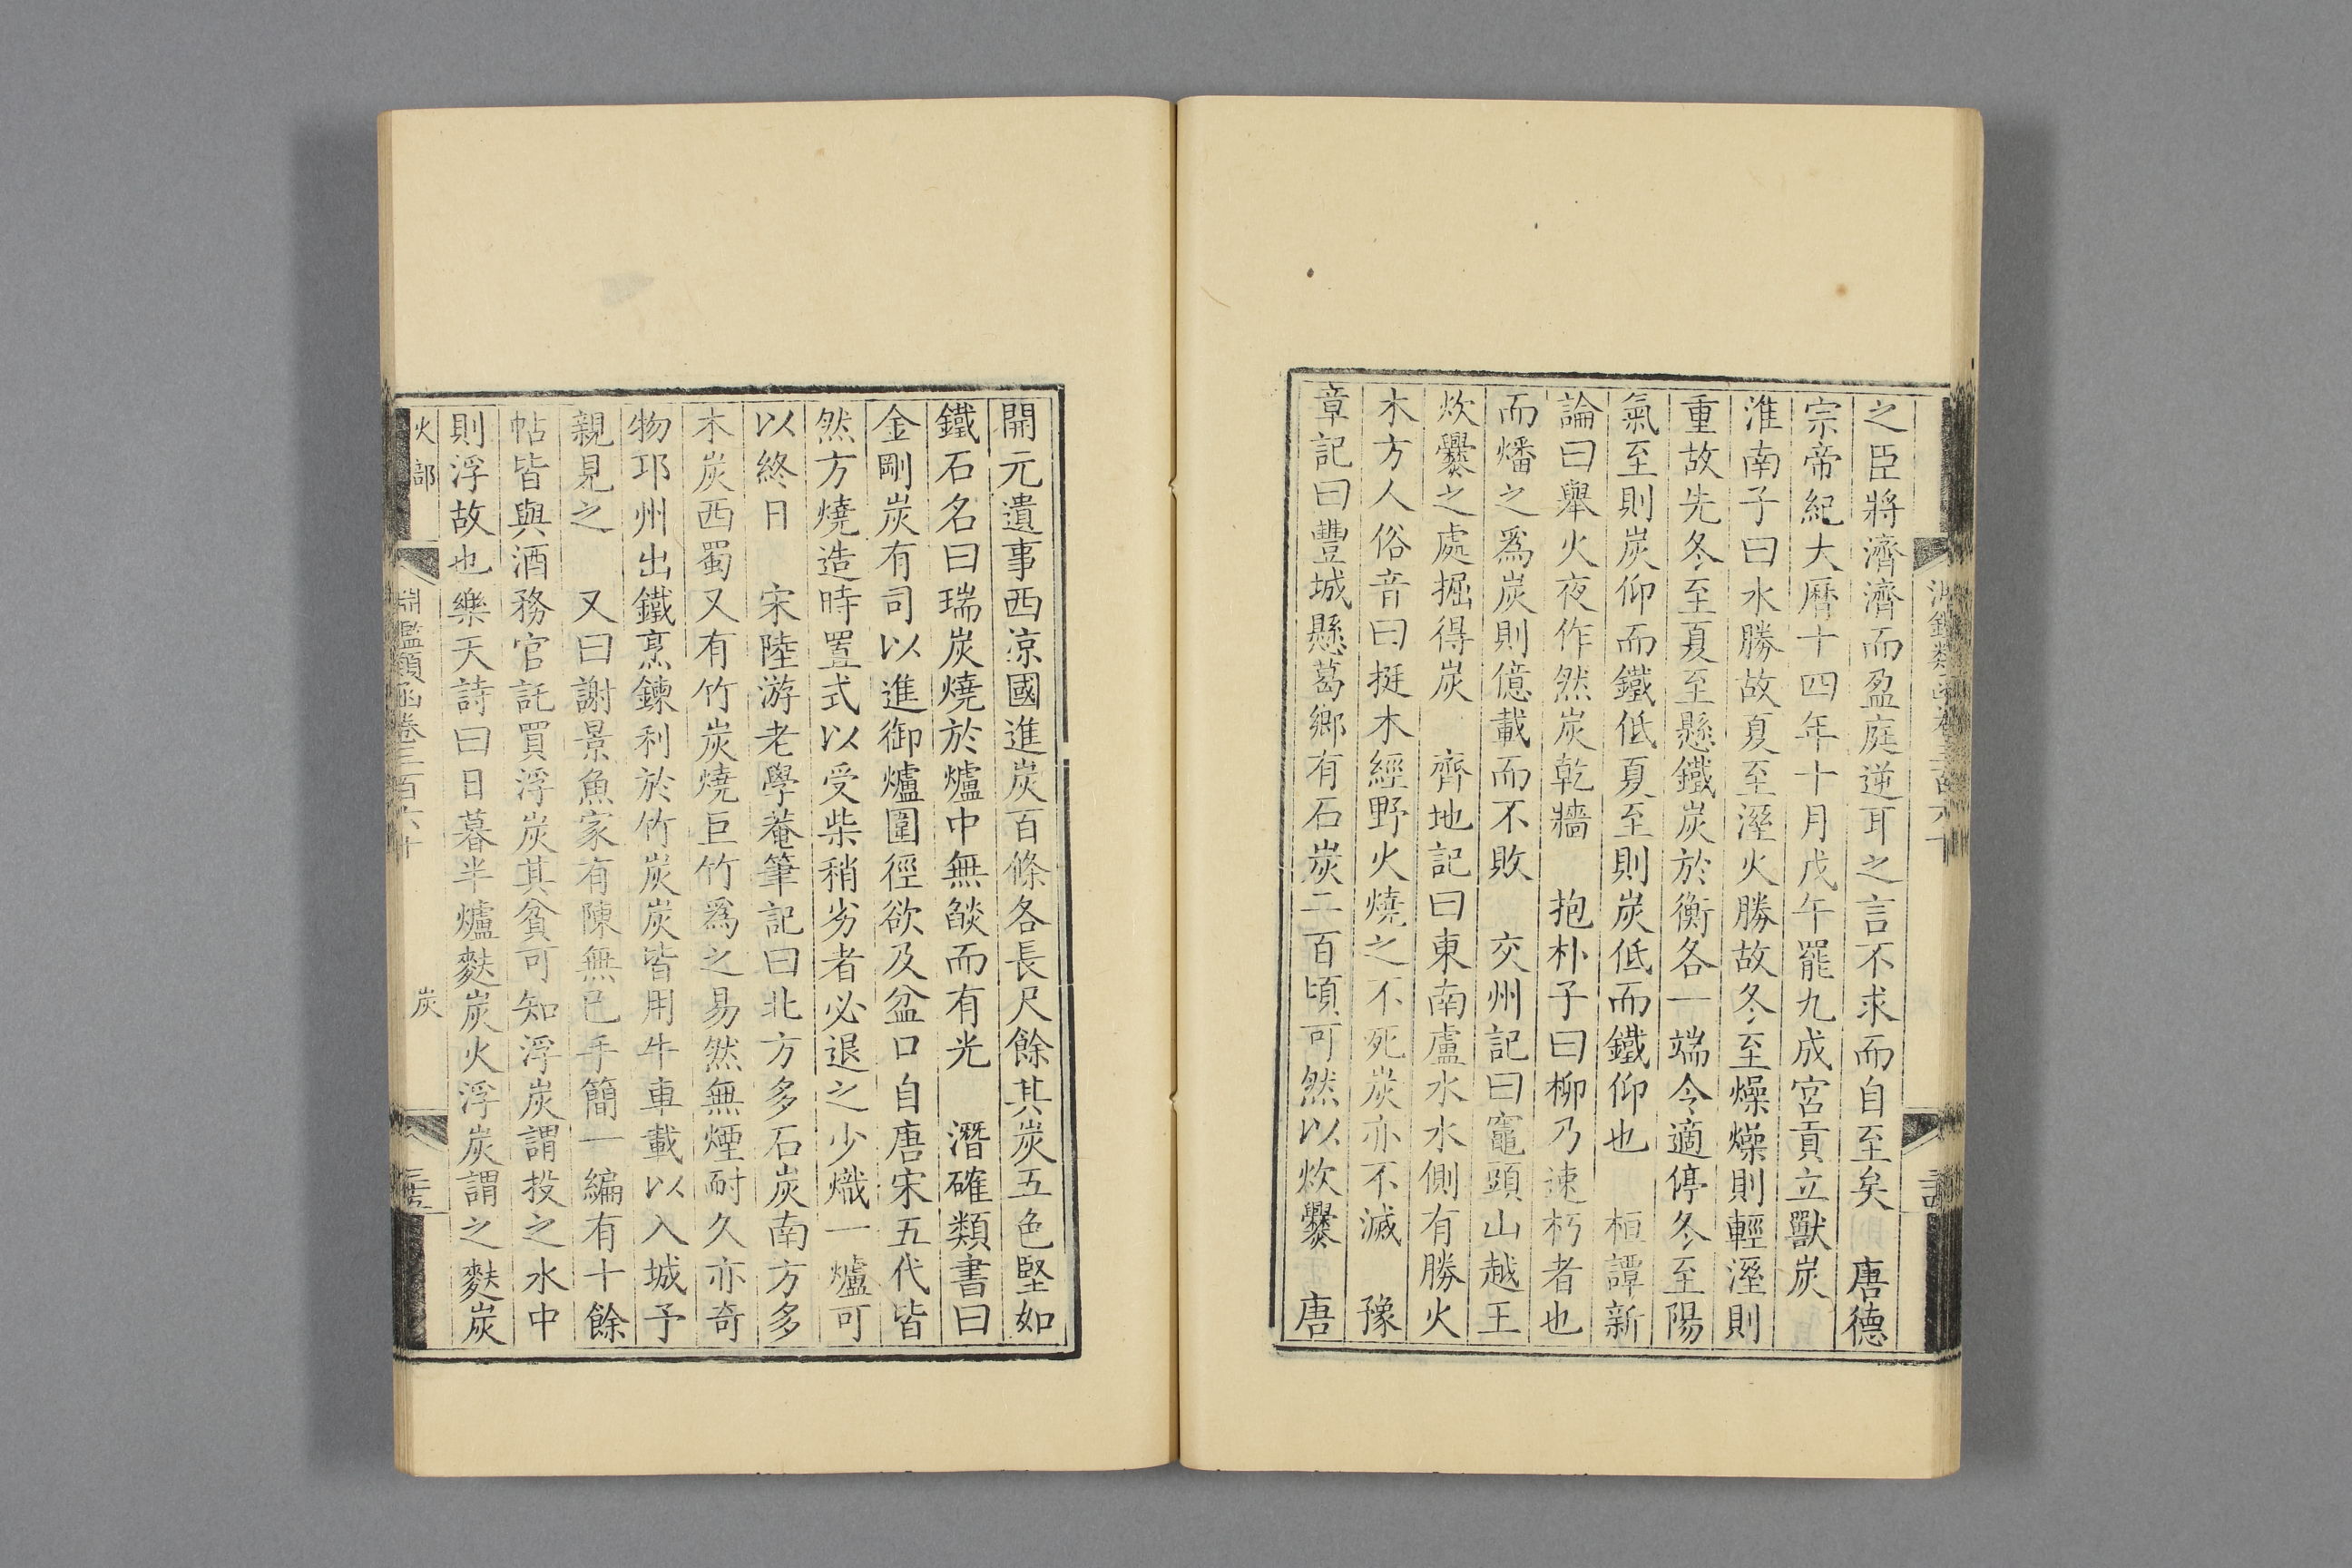 之臣將濟濟而盈庭逆耳之言不求而自至矣　唐德
宗帝紀大曆十四年十月戊午罷九成宮貢立獸炭
淮南子曰水勝故夏至溼火勝故冬至燥燥則輕溼則
重故先冬至夏至懸鐵炭於衡各一端令適停冬至陽
氣至則炭仰而鐵低夏至則炭低而鐵仰也　桓譚新
論曰舉火夜作然炭乾牆　抱朴子曰柳乃速朽者也
而燔之為炭則億載而不敗　交州記曰竈頭山越王
炊爨之處掘得炭　齊地記曰東南盧水水側有勝火
木方人俗音曰挺木經野火燒之不死炭亦不滅　豫
章記曰豐城懸葛鄉有石炭二百頃可然以炊爨　唐
開元遺事西涼國進炭百條各長尺餘其炭五色堅如
鐵石名曰瑞炭燒於爐中無燄而有光　潛確類書曰
金剛炭有司以進御爐圍徑欲及盆口自唐宋五代皆
然方燒造時置式以受柴稍劣者必退之少熾一爐可
以終日　宋陸游老學菴筆記曰北方多石炭南方多
木炭西蜀又有竹炭燒巨竹爲之易然無煙耐久亦奇
物邛州出鐵烹鍊利於竹炭炭皆用牛車載以入城予
親見之　又曰謝景魚家有陳無已手簡一編有十餘
帖皆與酒務官託買浮炭其貧可知浮炭謂投之水中
則浮故也樂天詩曰日暮半爐麩炭火浮炭謂之麩炭
火部　淵鑑類函卷三百六十　炭